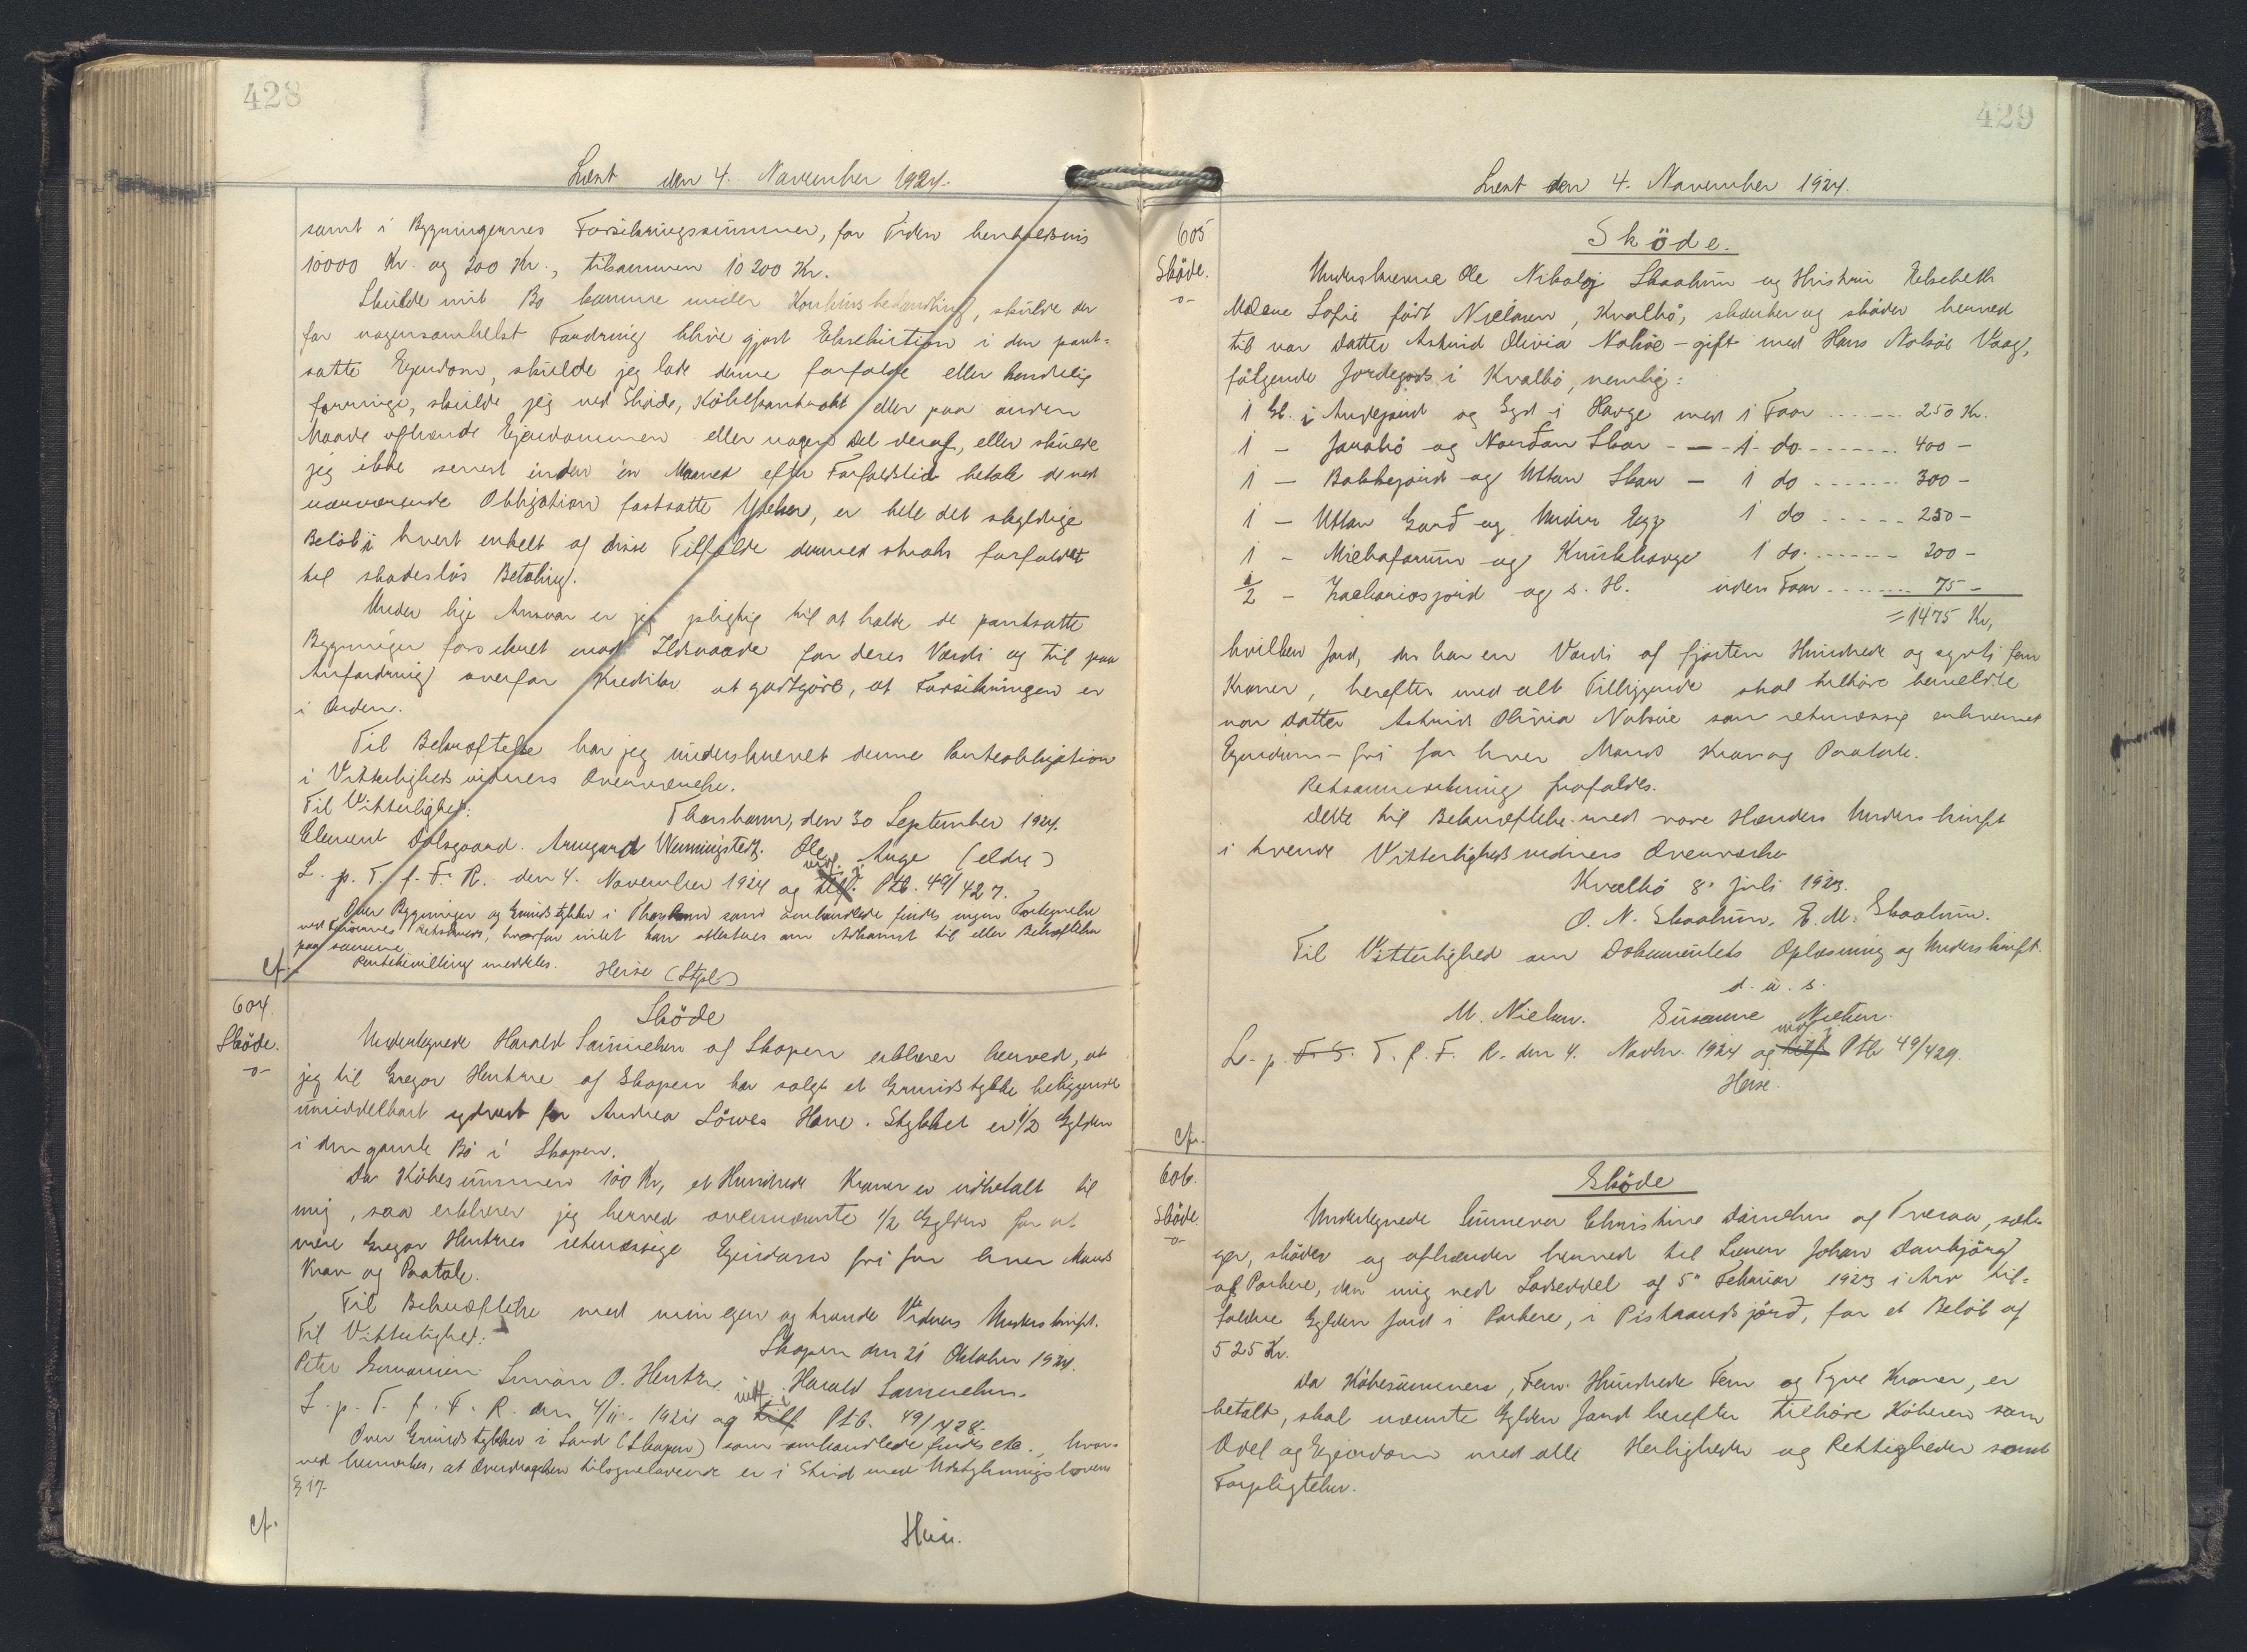 428
Læst den 4. November 1924.
samt i Bygningernes Forsikringssummer, for Tiden henholdsvis
10000 Kr. og 200 Kr., tilsammen 10 200 Kr.
Skulde mit Bo komme under Konkursbehandling, skulde der
for nogensomhelst Fordring blive gjort Eksekution i den pant-
satte Ejendom, skulde jeg lade denne forfalde eller kendelig
forringe, skulde jeg ved Skøde, Købekontrakt eller paa anden
Maade afhænde Ejendommen eller nogen Del deraf, eller skulde
jeg ikke senest inden én Maaned efter Forfaldstid betale de ved
nærværende Obligation fastsatte Ydelser, er hele det skyldige
Beløb i hvert enkelt af disse Tilfælde dermed straks forfaldet
til skadesløs Betaling.
Under lige Ansvar er jeg pligtig til at holde de pantsatte
Bygninger forsikret mod Ildsvaade for deres Værdi og til paa
Anfordring overfor Kreditor at godtgøre, at Forsikringen er
i Orden.
Til Bekræftelse har jeg underskrevet denne Panteobligation
i Vitterlighedsvidners Overværelse.
Til Vitterlighed: Thorshavn, den 30 September 1924.
Clement Dalsgaard. Armgard Wenningstedt. Ole Auge (eldre)
L. p. T. f. F. R. den 4. November 1924 og indf. i Ptb. 49/427.
Over Bygninger og Grundstykker i Thorshavn som omhandlede findes ingen Fortegnelse
ved Færøernes Retskreds, hvorfor intet kan attesteres om Adkomst til eller Behæftelser
paa samme.
Pantebevilling meddeles. Heise (Stpl)
cf.
604.
Skøde.
-o-
Skøde
Undertegnede Harald Samuelsen af Skopen erklærer herved, at
jeg til Gregor Hentze af Skopen har solgt et Grundstykke beliggende
umiddelbart sydvest for Andrea Løwes Have. Stykket er 1/2 Gylden
i den gamle Bø i Skopen.
Da Købesummen 100 Kr, et Hundrede Kroner er udbetalt til
mig, saa erklærer jeg herved ovennævnte 1/2 Gylden for at
være Gregor Hentzes retmæssige Ejendom fri for hver Mands
Krav og Paatale.
Til Bekræftelse med min egen og tvende Vidners Underskrift.
Til Vitterlighed: Skopen den 21 Oktober 1924.
Peter Simon O. Hentze. Harald Samuelsen.
L. p. T. f. F. R. den 4/11. 1924 og indf. i Ptb. 49/428.
Over Grundstykker i Sand (Skopen) som omhandlede findes etc., hvor-
ved bemærkes, at Overdragelsen tilsyneladende er i Strid med Udstykningslovens
§ 17.
cf. Heise.
429
Læst den 4. November 1924.
605
Skøde.
-o-
Skøde.
Underskrevne Ole Nikolaj Skaalum og Hustru Elsebeth
Malene Sofie født Nielsen, Kvalbø, skænker og skøder herved
til vor Datter Astrid Olivia Nolsøe - gift med Hans Nolsøe Vaag,
følgende Jordegods i Kvalbø, nemlig:
1 Gl. i og i Hauge med 1 Faar ...... 250 Kr.
1 - og Nordan Skar - - 1 do ....... 400 -
1 - og Uttan Skar - 1 do ....... 300 -
1 - Uttan Gard og Undir Egg 1 do ...... 250 -
1 - og 1 do. ....... 200 -
1/2 - Zachariasjord og s. H. uden Faar ........ 75 -
= 1475 Kr,
hvilken Jord, der har en Værdi af fjorten Hundrede og syvti fem
Kroner, herefter med alt Tilliggende skal tilhøre bemeldte
vor Datter Astrid Olivia Nolsøe som retmæssig erhvervet
Ejendom - fri for hver Mands Krav og Paatale.
Retsanmærkning frafaldes.
Dette til Bekræftelse med vore Hænders Underskrift
i tvende Vitterlighedsvidners Overværelse
Kvalbø 8. juli 1923.
O. N. Skaalum. E. M. Skaalum.
Til Vitterlighed om Dokumentets Oplæsning og Underskrift.
d. u. s.
M. Nielsen. Susanne Nielsen.
L. p. T. f. F. R. den 4. Novbr. 1924 og indf. i Ptb 49/429.
Heise.
cfr.
606.
Skøde
-o-
Skøde
Undertegnede Sunneva Christine Danielsen af Tveraa, sæl-
ger, skøder og afhænder herved til Simon Johan Danbjørg
af Porkere, den mig ved Lodseddel af 5" Februar 1923 i Arv til-
faldne Gylden Jord i Porkere, i for et Beløb af
525 Kr.
Da Købesummen, Fem Hundrede Fem og Tyve Kroner, er
betalt, skal nævnte Gylden Jord herefter tilhøre Køberen som
Odel og Ejendom med alle Herligheder og Rettigheder samt
Forpligtelser.